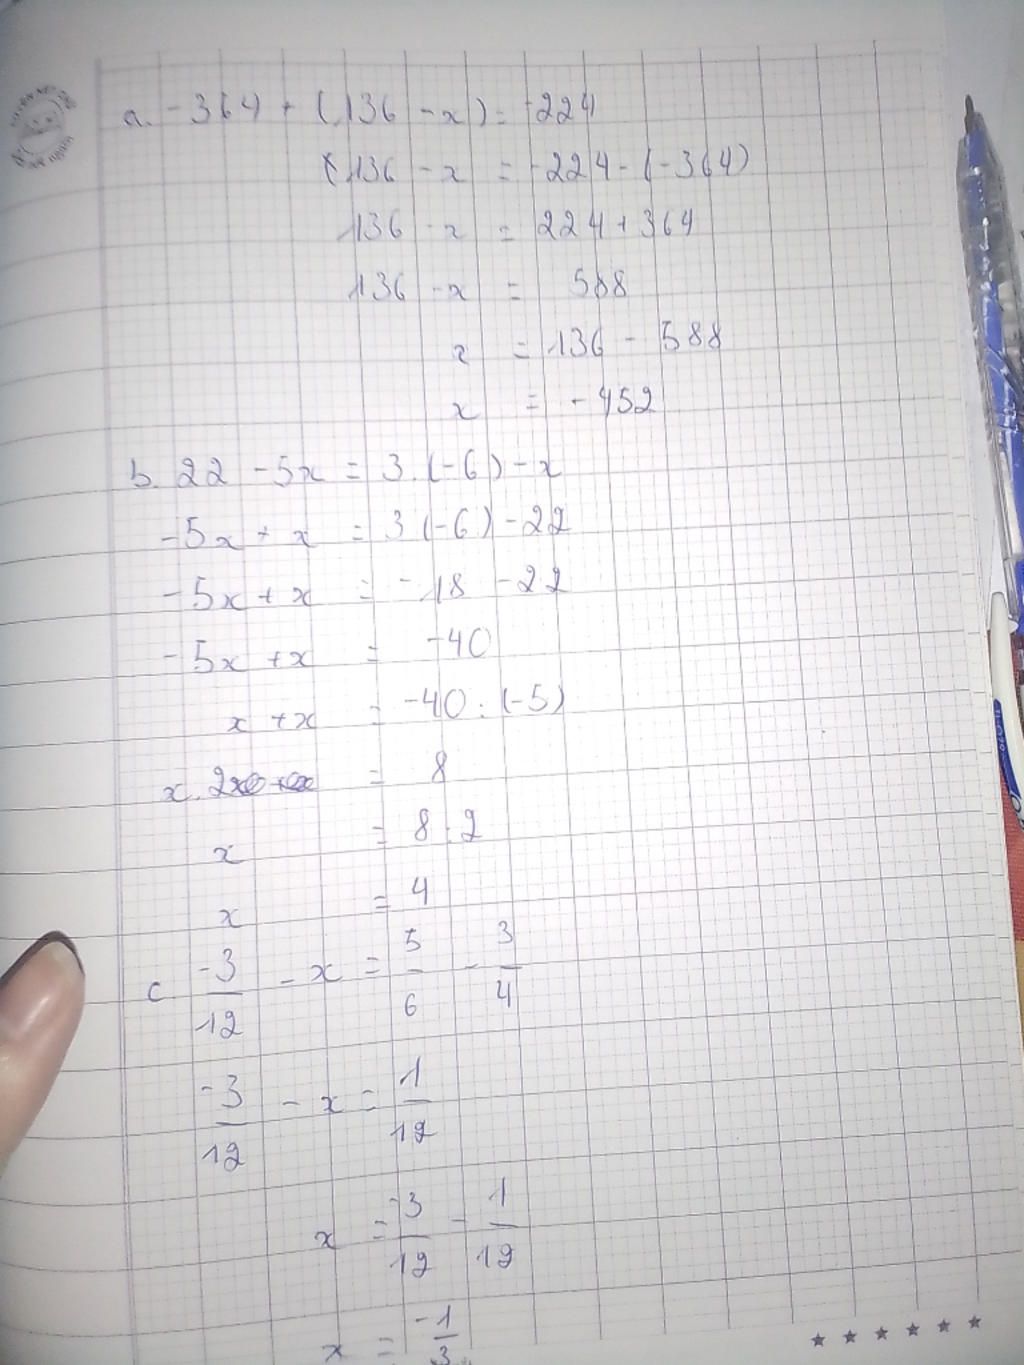 a. -364 + (136 - x) = -224
(136 - x = -224 - (-364)
136 - x = 224 + 364
136 - x = 588
x = 136 - 588
x = -452
b. 22 - 5x = 3.(-6) - x
-5x + x = 3(-6) - 22
-5x + x = -18 - 22
-5x + x = -40
x + x = -40 : (-5)
x . 2 = 8
x = 8 : 2
x = 4
c -3/12 - x = 5/6 - 3/4
-3/12 - x = 1/12
x = -3/12 - 1/12
x = -1/3